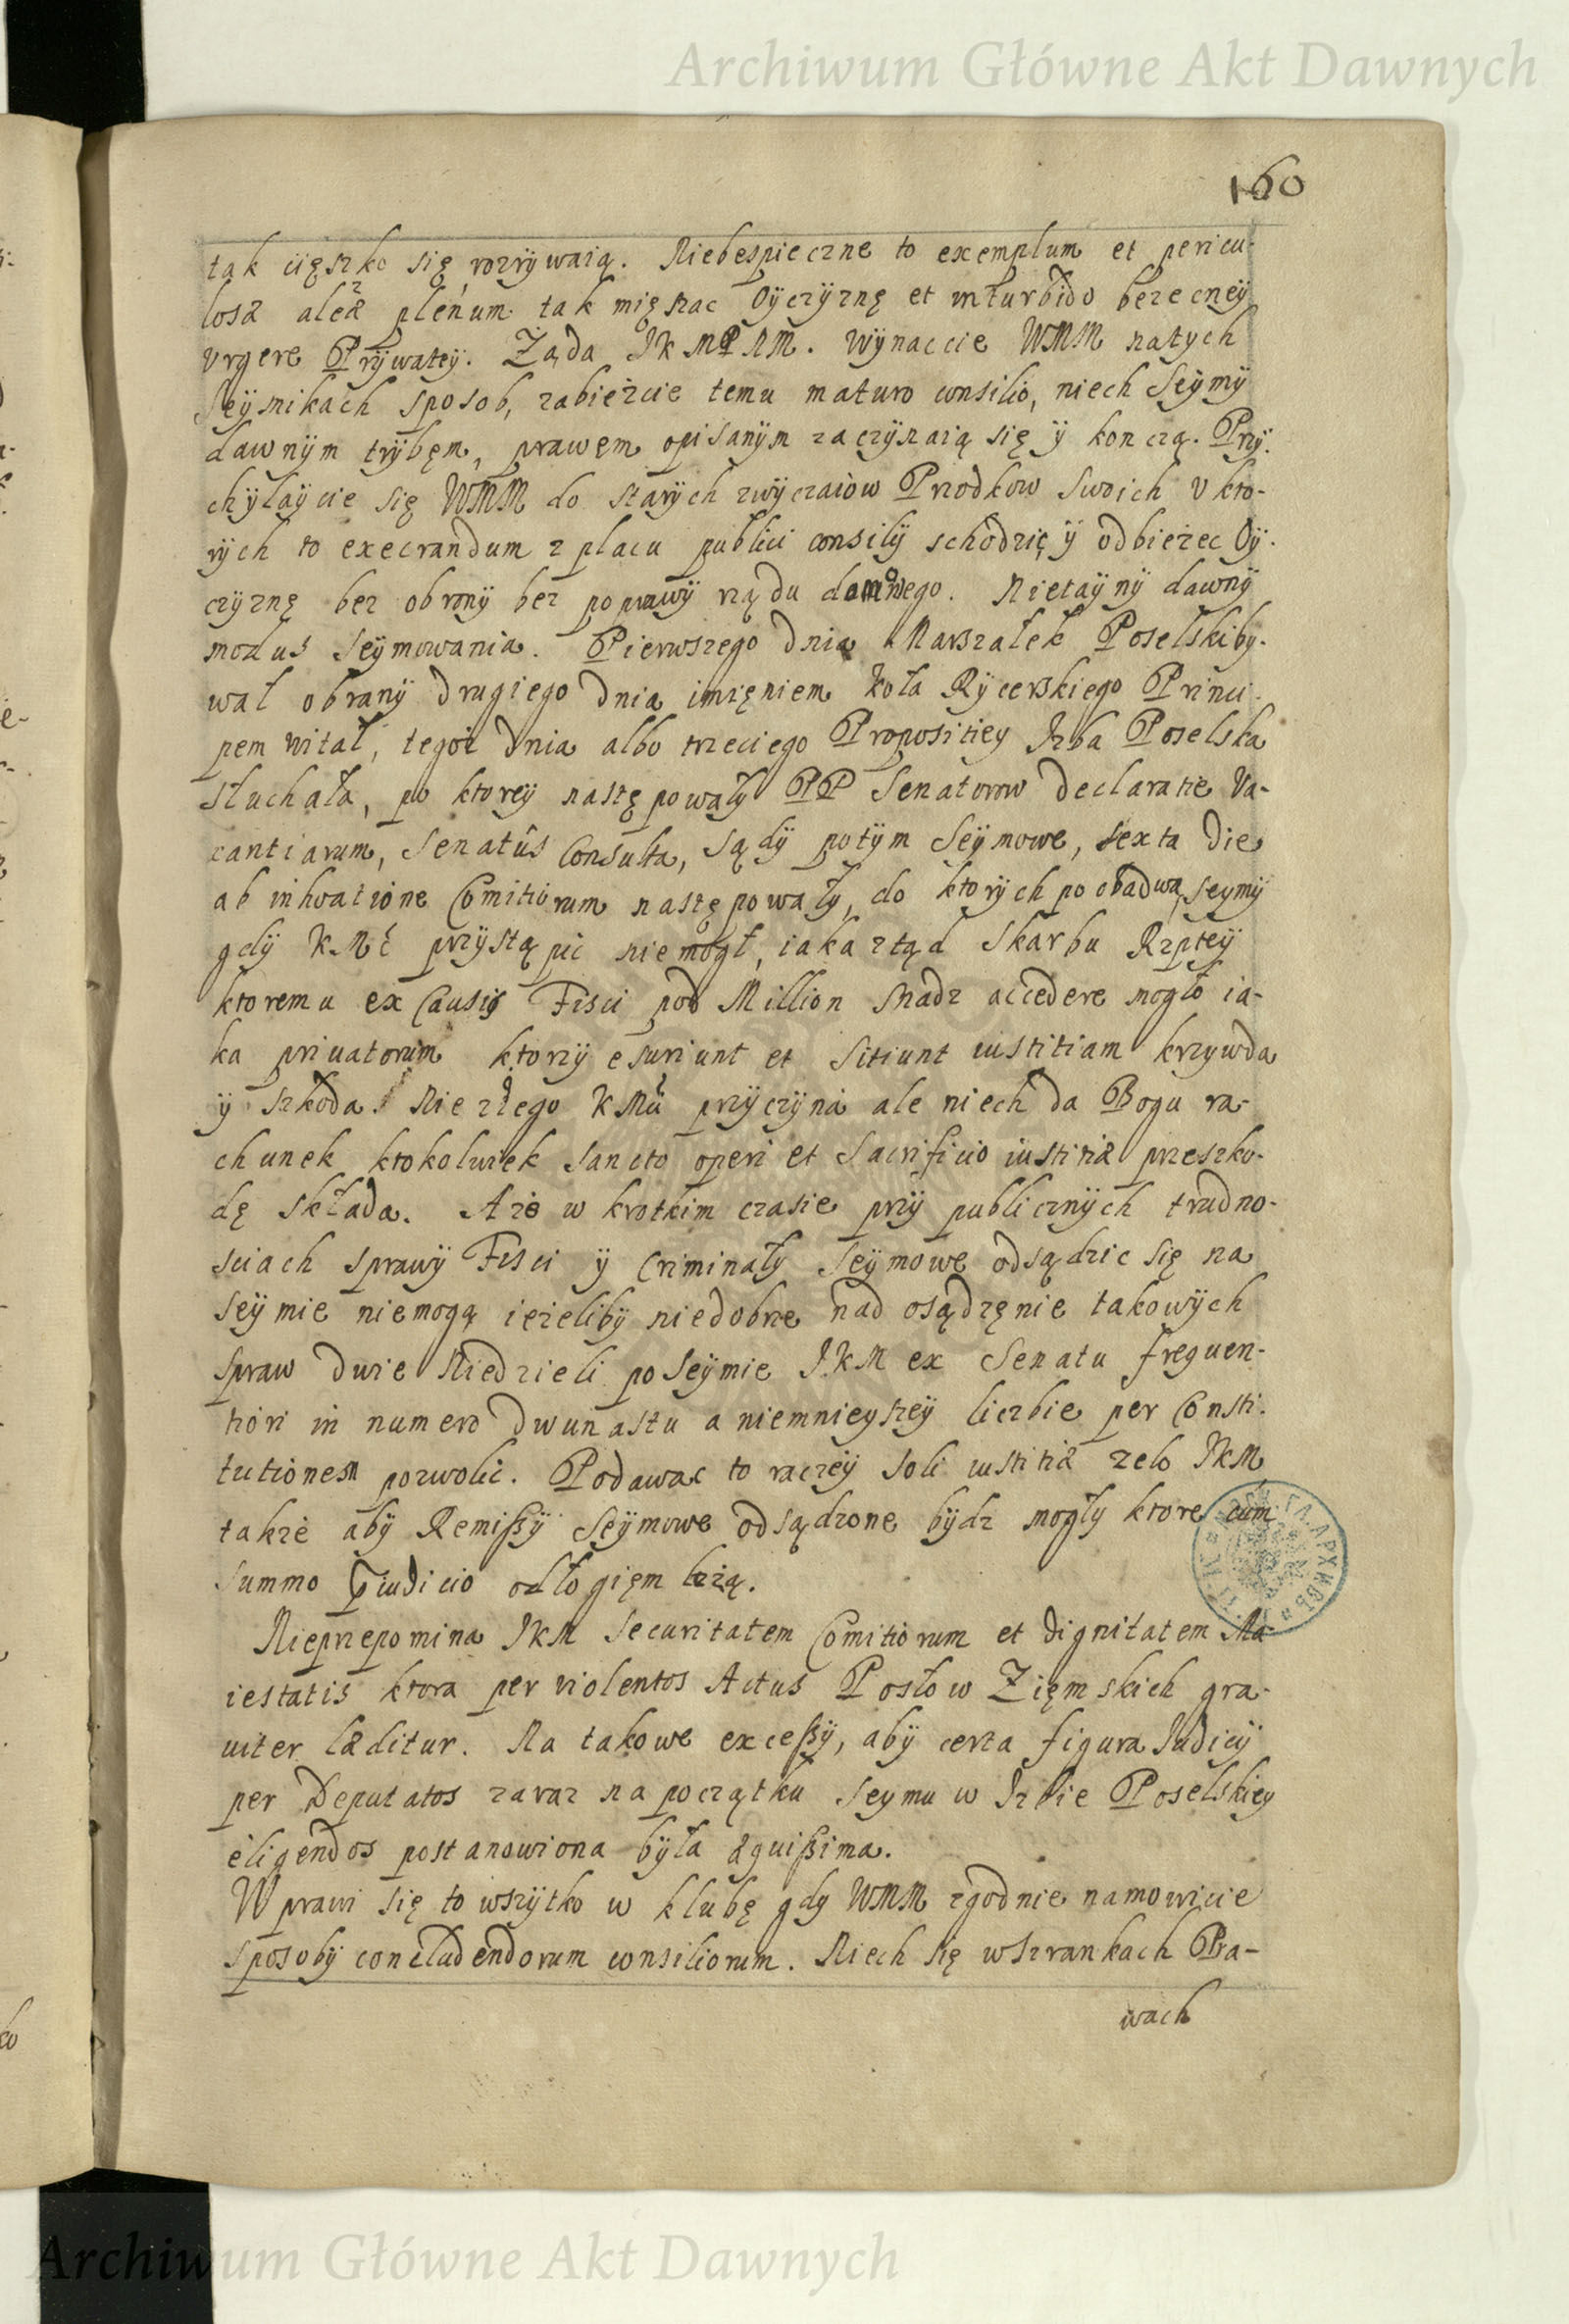 Archiwum Główne Akt Dawnych
160
tak cięszko się rozrywaią. Niebespieczne to exemplum et pericu-
losæ aleæ plenum tak mięszac Oyczyznę et in turbido bezecney
vrgere Prywatey. Żąda JKMPNM. Wynaccie WMM natych
Seymikach sposob, zabieżcie temu maturo consilio, niech Seymy
dawnym trybęm, prawęm opisanym zaczynaią się y konczą. Przy-
chylaycie się WMM do starych zwyczaiow Przodkow swoich v kto-
rych to execrandum z placu publici consily schodzię y odbieżec Oy-
czyznę bez obrony bez poprawy rządu domowego. Nietayny dawny
modus Seymowania. Pierwszego dnia Marszałek Poselski by-
wał obrany drugiego dnia imięniem koła Rycerskiego Princi-
pem witał, tegoż dnia albo trzeciego Propositiey Izba Poselska
słuchała, po ktorey następowały PP Senatorow declaratie Va-
cantiarum, Senatûs Consulta, Sądy potym Seymowe, sexta die
ab inhoatione Comitiorum następowały, do ktorych po obadwa seymy
gdy KMć przystąpic niemogł, iaka ztąd Skarbu Rzptey
ktoremu ex Causis Fisci pod Million snadz accedere mogło ia-
ka priuatorum ktorzy esuriunt et sitiunt iustitiam krzywda
y szkoda. Nie z tego KMći przyczyna ale niech da Bogu ra-
chunek ktokolwiek sancto operi et Sacrificio iustitiæ przeszko-
dę składa. Aże w krotkim czasie przy publicznych trudno-
sciach sprawy Fisci y Criminały Seymowe odsądzic się na
Seymie niemogą ieżeliby niedobrze nad osądzęnie takowych
spraw dwie Niedzieli po Seymie JKM ex Senatu frequen-
tiori in numero dwunastu a niemnieyszey liczbie per Consti-
tutionem pozwolic. Podawac to raczey soli iustitiæ zelo JKM
takze aby Remißy Seymowe odsądzone bydz mogły ktore cum
summo Piudicio odłogięm leżą.
Nieprzepomina JKM securitatem Comitiorum et dignitatem Ma-
iestatis ktora per violentos Actus Posłow Zięmskich gra-
uiter læditur. Na takowe exceßy, aby certa figura Judicy
per Deputatos zaraz na początku Seymu w Izbie Poselskiey
eligendos postanowiona była æquißima.
Wprawi się to wszytko w klubę gdy WMM zgodnie namowicie
sposoby concludendorum consiliorum. Niech się w Szrankach Pra-
wach
Archiwum Główne Akt Dawnych